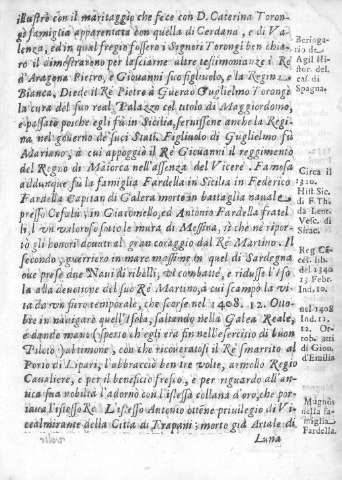 illustrò con il maritaggio che fece con D. Caterina Toron-
gè famiglia apparentata con quella di Cerdana, e di Va-
lenza, ed in qual fregio fossero i Signori Torongi ben chia-
ro il dimostrareno per lasciarne altre testimonianze i Rè
d'Aragona Pietro, e Giovanni suo figliuolo, e la Regina
Bianca, Diede il Rè Pietro à Guerao Guglielmo Torongè
la cura del suo real Palazzo col titolo di Maggiordomo,
e passato poscia egli fù in Sicilia, servissene anche la Regi-
na nel governo de suoi Stati. Figliuolo di Guglielmo fù
Adariano, à cui appoggiò il Rè Giovanni il reggimento
del Regno di Maiorca nell'assenza del Vicerè. Famosa
addunque fù la famiglia Fardella in Sicilia in Federico
Fardella Capitan di Galera morto in battaglia navale
presso Cefalù, in Giacomello, ed Antonio Fardella fratel
li, l'un valoroso sotto le mura di Messina, sì che nè ripor-
tò gli honori dovuti al gran coraggio dal Rè Martino. Il
secondo guerriero in mare massime in quel di Sardegna
ove prese due Navi di ribelli, vi combattè, e ridusse l'Iso
la alla devotione del suo Rè Martino, à cui scampò la vi-
ta da un fiero temporale, che scorse nel 1408. 12. Otto-
bre in navigarò quell'Isola, saltando nella Galea Reale,
e dando mano (spesso ch'egli era fin nell'esercitio di buon
Piloto) al timone, con che ricoveratosi il Rè smarrito al
Porto di Lipari, l'abbracciò ben tre volte, armollo Regio
Cavaliere, e per il beneficio fresco, e per riguardo all'an-
tica sua nobiltà l'adornò con l'istessa collana d'oro, che por-
tava l'istesso Rè. L'istesso Antonio ottène privilegio di Vi-
ceadmirante della Città di Trapani; morto già Artale di
Luna
Beriogatio de
Agil Histor. del.
cas. di
Spagna.
Circa il
1310.
Hist. Sic.
di F. Th.
da Lent.
Vesc. di
Sirac.
Reg. Cãcel. fib.
del 1340
13 Febr.
Ind. 12.
nel 1408
Ind. 12.
12. Ottob. atti
di Gion.
d'Emilia
Magnos
nella famiglia
Fardella.